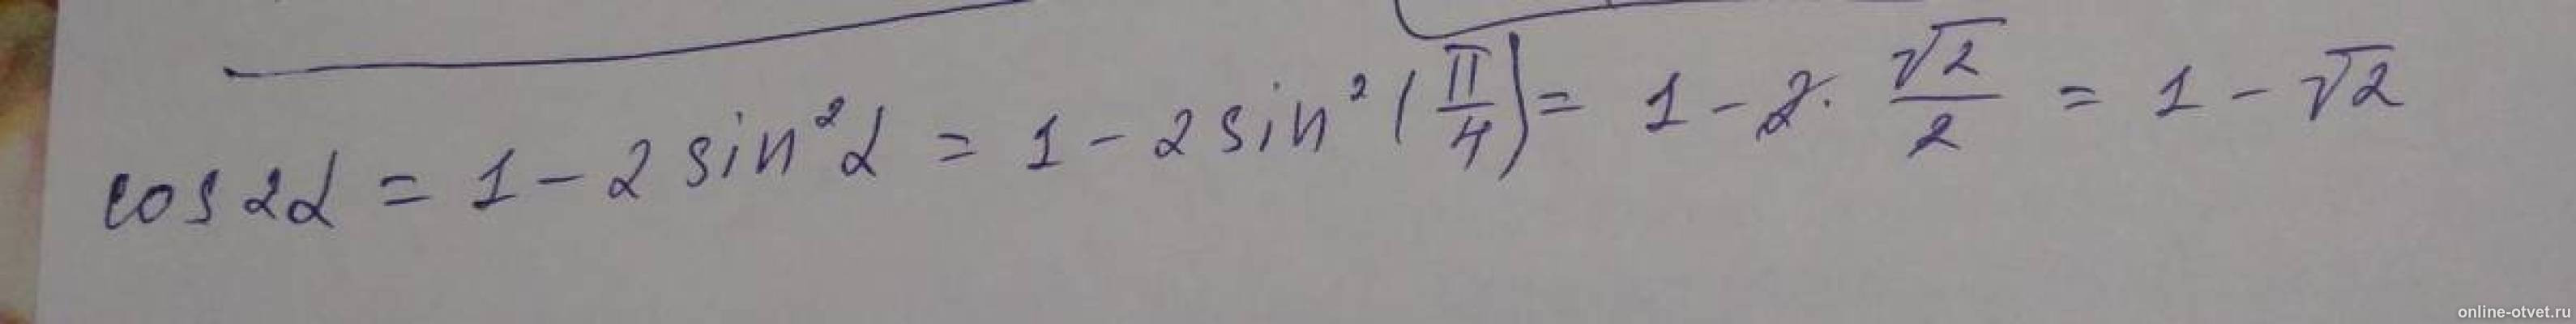 cos 2α = 1 - 2 sin²α = 1 - 2 sin²(π/4) = 1 - 2 · √2/2 = 1 - √2
online-otvet.ru